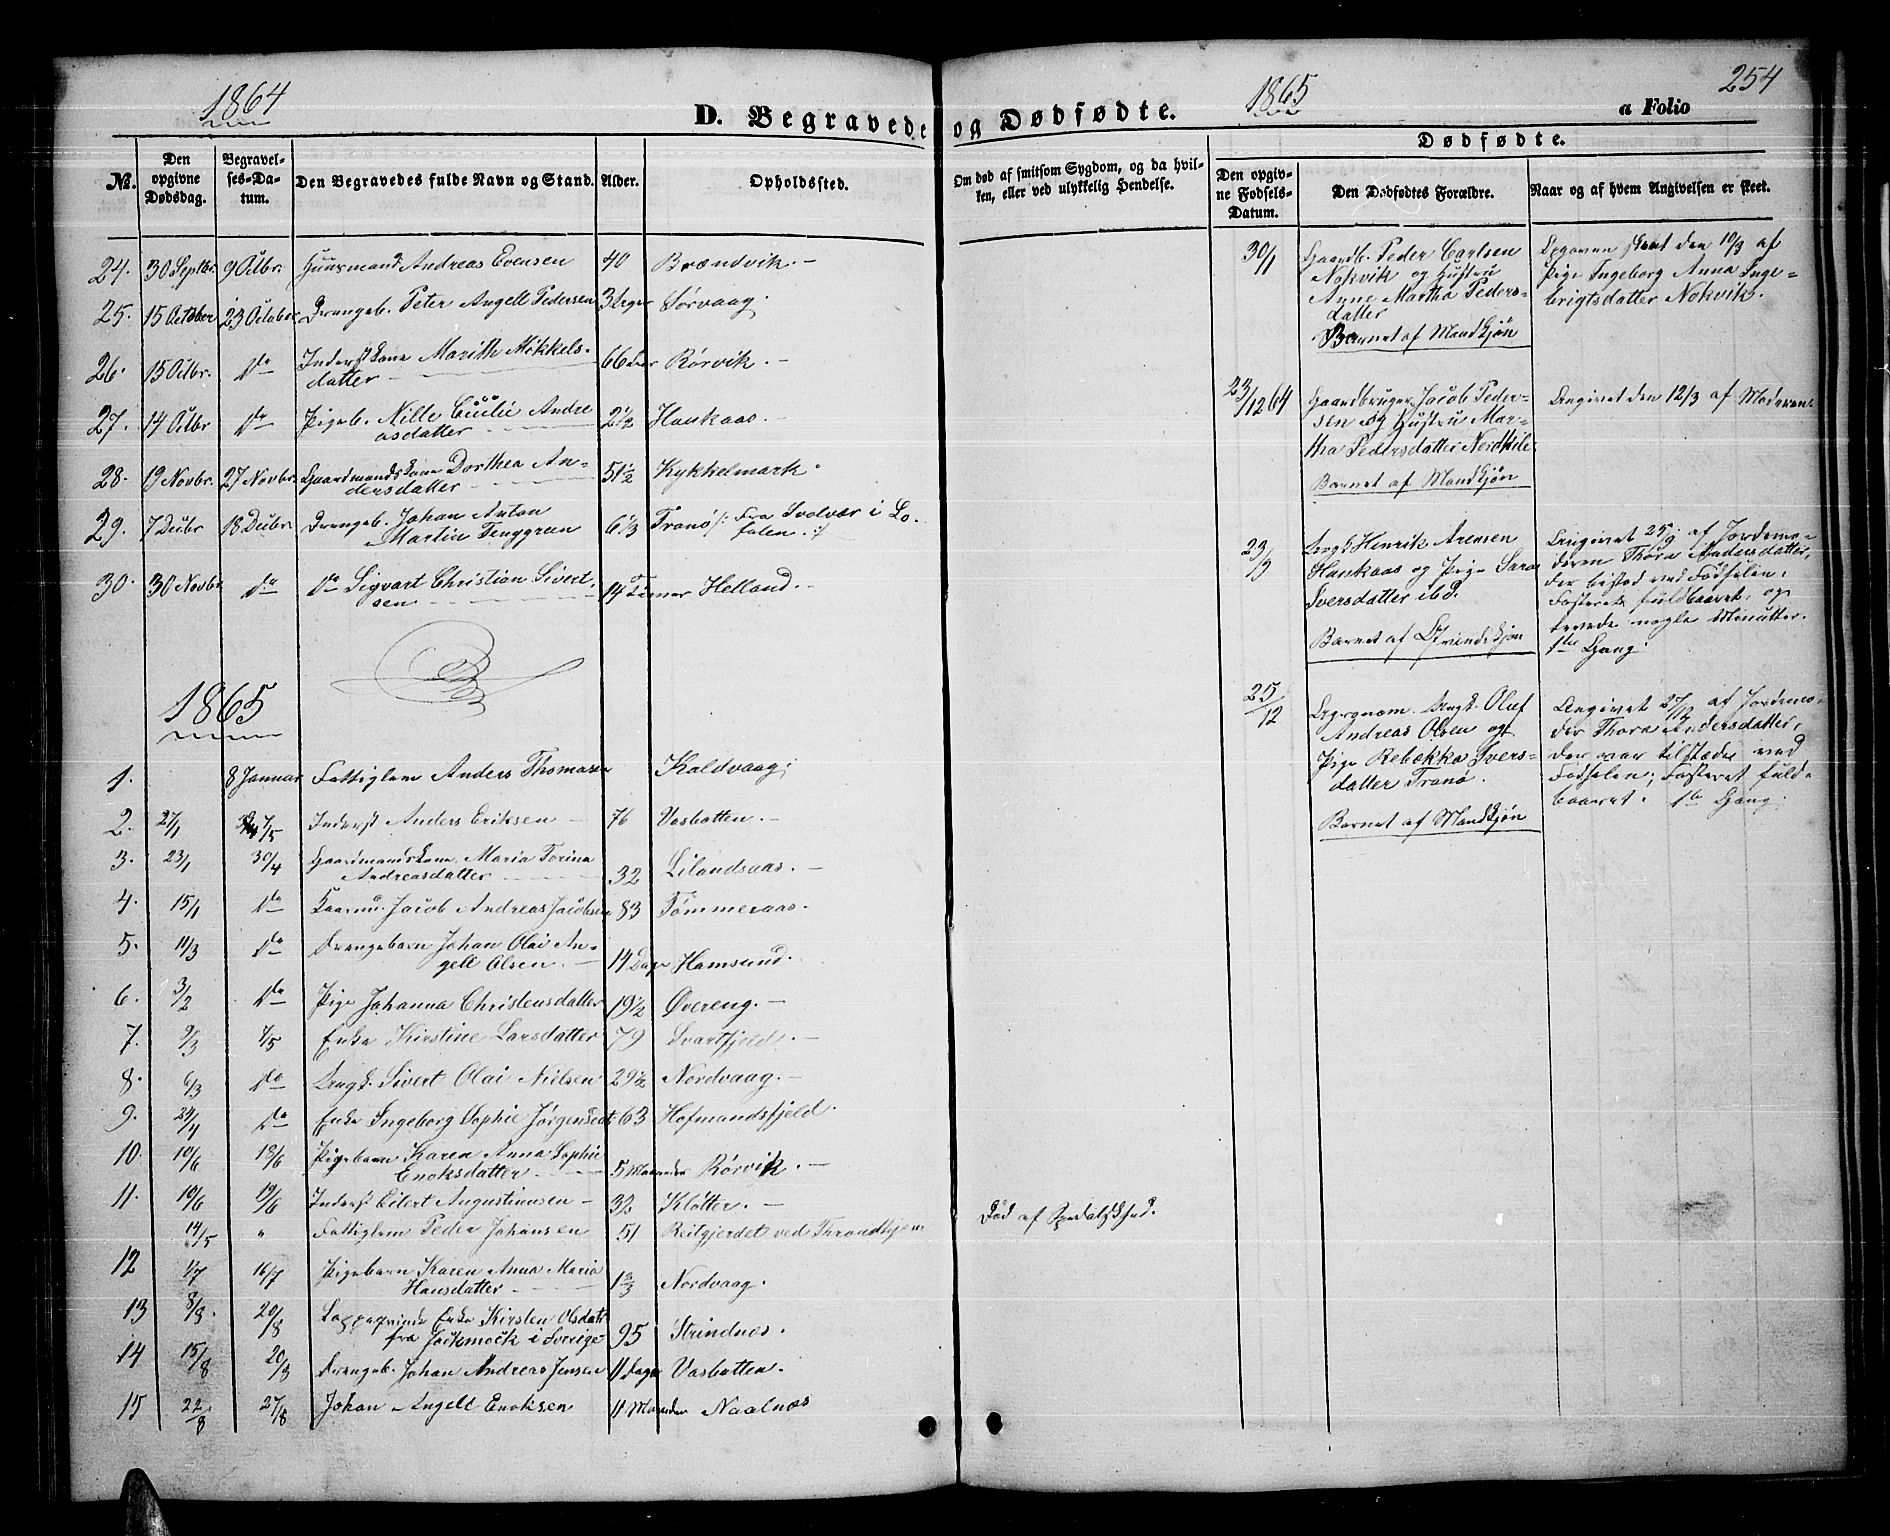 1864
D. Begravede og Dødfødte.
1865
254
a Folio
No.
Den opgivne Dødsdag.
Begravelses-Datum.
Den Begravedes fulde Navn og Stand.
Alder.
Opholdssted.
Om død af smitsom Sygdom, og da hvilken, eller ved ulykkelig Hendelse.
Dødfødte.
Den opgivne Fødsels-Datum.
Den Dødfødtes Forældre.
Naar og af hvem Angivelsen er skeet.
24. 30 Septbr. 9 Octbr. Huusmand Andreas Evensen 40 Brændvik.
25. 15 October 23 October Drengeb. Peter Angell Pedersen Sørvaag.
26. 15 Octbr. Do Inderst Kone Marith Mökkels-
datter 66 Rørvik.
27. 14 Octbr Do Pigeb. Nille Andre
asdatter 2 1/2 Haukaas.
28. 19 Novbr. 27 Novbr. Gaardmandskone Dorthea An-
dersdatter 51 1/2 Kykkelmark
29. 7 Decbr 18 Decbr. Drengeb. Johan Anton
Martin Tenggren 6 1/3 Tranø /: fra Svolvær i Lo-
foten :/
30. 30 Novbr Do Do Sigvart Christian Sivert
sen 14 Timer Helland.
1865
1. 8 Januar Fattiglem Anders Thomasen Kaldvaag
2. 27/1 7/5 Inderst Anders Eriksen 76 Vasbotten.
3. 23/1 30/4 Gaardmandskone Maria Torina
Andreasdatter 32 Lilandsaas.
4. 15/1 Do Kaarmd. Jacob Andreas Jacobsen 83 Tømmeraas.
5. 11/3 Do Drengebarn Johan Olai An-
gell Olsen. 14 Dage Hamsund.
6. 3/2 Do Pige Johanna Christensdatter 19 1/2 Øvereng.
7. 9/3 7/5 Enke Kirstine Larsdatter 79 Svartfjeld.
8. 6/3 Do Ungk. Sivert Olai Nielsen 29 1/2 Nordvaag.
9. 24/4 Do Enke Ingeborg Sophie Jørgensdat: 63 Hofmandsfjeld.
10. 10/6 18/6 Pigebarn Karen Anna Sophie
Enoksdatter 5 Maaneder Rørvik.
11. 10/6 19/6 Inderst Eilert Augustinusen 32 Kløtter.
14/5 " Fattiglem Peder Johansen 51 Reitgjerdet ved Throndhjem Død af Spedalskhed.
12 1/7 16/7 Pigebarn Karen Anna Maria
Hansdatter 1 2/3 Nordvaag.
13 8/8. 20/8 Lappeqvinde Enke Kirsten Olsdatt
fra Jockmock i Sverige 95 Strindnæs.
14 15/8 20/8 Drengeb. Johan Andreas Jensen 11 Dage Vasbotten.
15 22/8 27/8 Johan Angell Enoksen 11 Maaneder Naalnæs
30/1 Gaardb. Peder Carlsen
Nokvik og Hustru
Anne Martha Peders-
datter
Barnet af Mandkjøn
Opgaven skeet den 10/3 af
Pige Ingeborg Anna Inge-
brigtsdatter Nokvik.
23/12 64 Gaardbruger Jacob Peder-
sen og Hustru Mar-
tha Pedersdatter
Barnet af Mandkjøn
Angivet den 12/3 af Moderen
23/9 Ungk. Henrik Arensen
Haukaas og Pige Sara
Iversdatter ibd.
Barnet af Qvindekjøn
Angivet 25/9 af Jordemo-
deren Thora Andersdatter,
der bistod ved Fødselen.
Fosteret fuldbaaret, og
levede nogle Minutter.
1ste Gang.
25/12 Ungk. Oluf
Andreas Olsen og
Pige Rebekka Ivers-
datter Tranø.
Barnet af Mandkjøn
Angivet 27/12 af Jordemo-
der Thora Andersdatter,
der var tilstæde ved
Fødselen; Fosteret fuld-
baaret. 1te Gang.